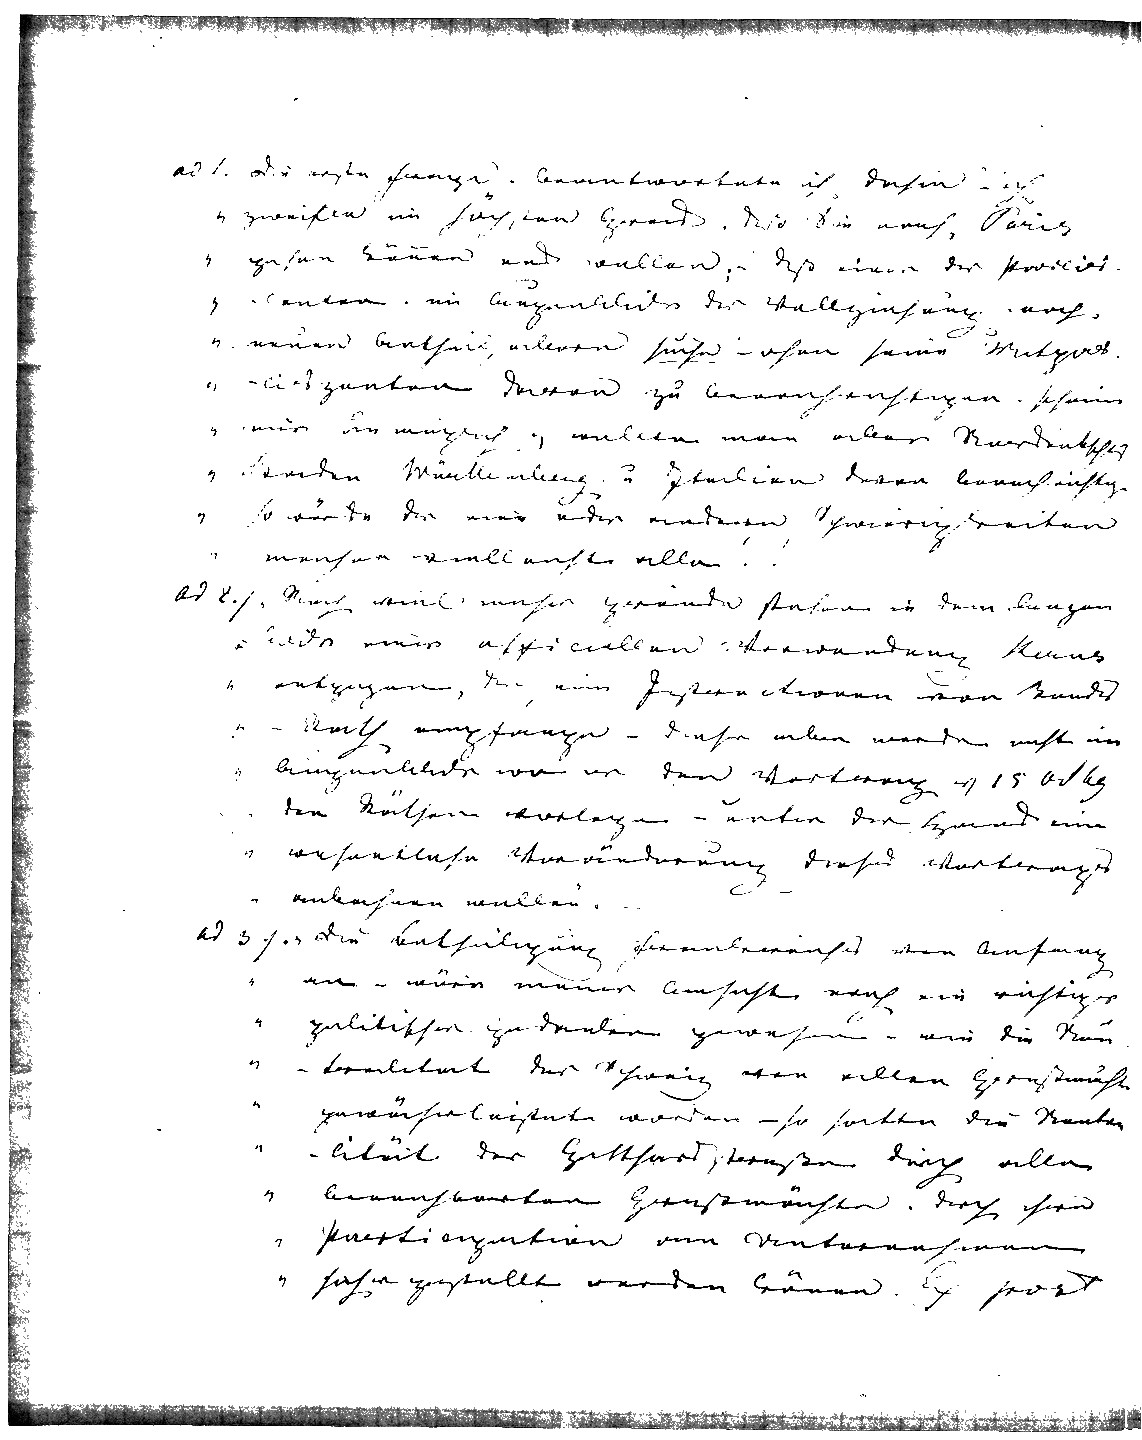 ad 1. Die erste Frage. beantwortete ich dahin - ich
" zweifle im höchsten Grade. daß Sie nach Paris
" gehen können und wollen, - daß einer der Participi-
" -canten. im Augenblicke der Vollziehung noch.
" neuen Antheil haben suche - ohne seine Mitpar-
" -ticipanten davon zu benachrichtigen. scheine
" mir unmöglich, wollten man aber Norddeutschld
" Baden Württemberg. u Italien davon benachrichtigen
" so würde der eine oder anderen Schwierigkeiten
" machen vielleicht alle!.
ad 2.). Noch viel mehr gründe stehen in dem Augen
" -blicke einer officiellen Verwendung Kerns
" entgegen, der seine Instructionen vom Bundes
" - Rath empfange - dieser aber werde nicht im
" Augenblicke wo er den Vertrag v 15 Oct 69
" den Räthen vorlege - unter der Hand eine
" wesentliche Veränderung dieses Vertrages
" anbahnen wollen.
ad 3.). Die Betheiligung Frankreichs von Anfang
" an - wäre meiner Ansicht nach ein richtiger
" politischer gedanken gewesen - wie die Neu
" -tralitaet der Schweiz von allen Grossmächten
" gewährleistet worden - so hätte die Neutra
" -lität der Gotthardstrasse durch alle
" benachbarten Grossmächte. durch ihre
" Participation am Unternehmen
" sicher gestellt werden können. Ex post